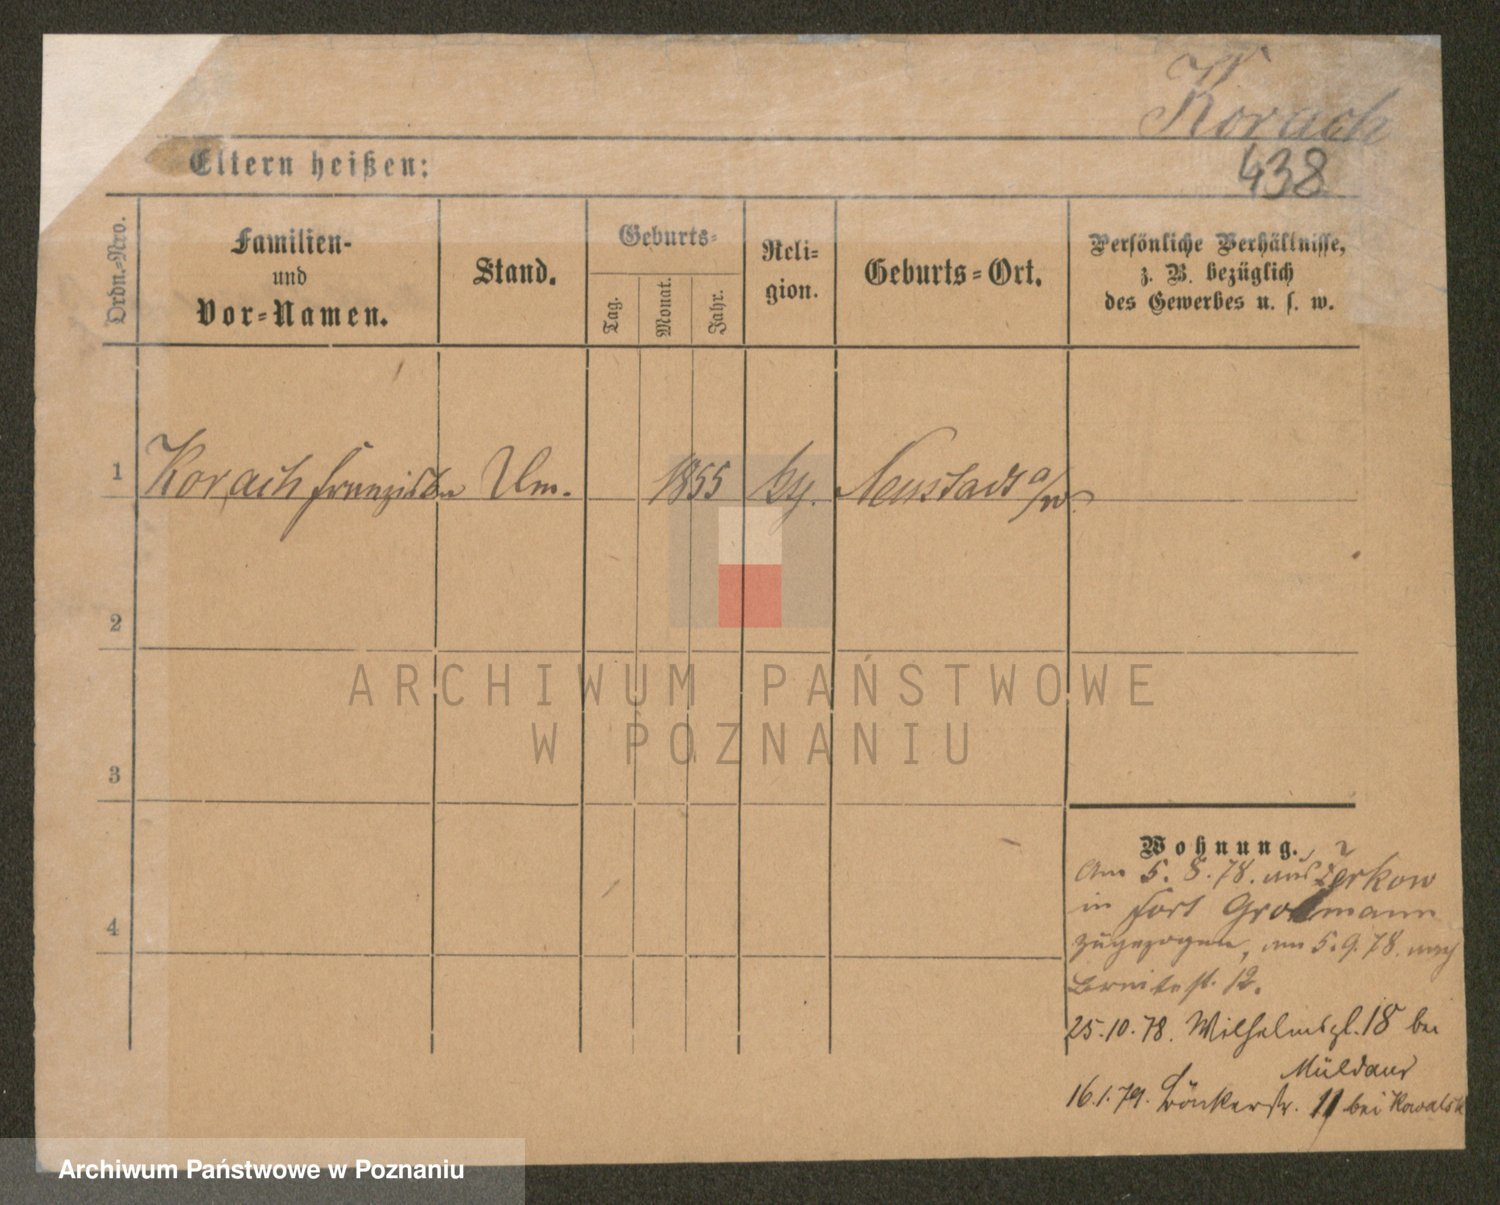 Korach
438
Eltern heißen:
Ordn.-Nro.
Familien-
und
Vor-Namen.
Stand.
Geburts-
Tag.
Monat.
Jahr.
Reli-
gion.
Geburts-Ort.
Persönliche Verhältnisse,
z. B. bezüglich
des Gewerbes u. s. w.
1 Korach Franziska 1855 Neustadt a/W.
2
ARCHIWUM PAŃSTWOWE
W POZNANIU
3
Wohnung.
Am 5. 8. 78. aus Zerkow
4
in Fort Grolmann
zugezogen, am 5. 9. 78. nach
Breitestr. 12.
25.10.78. Wilhelmspl. 18 bei
Müldaur
16.1.79. 11 bei Kowalsk
Archiwum Państwowe w Poznaniu